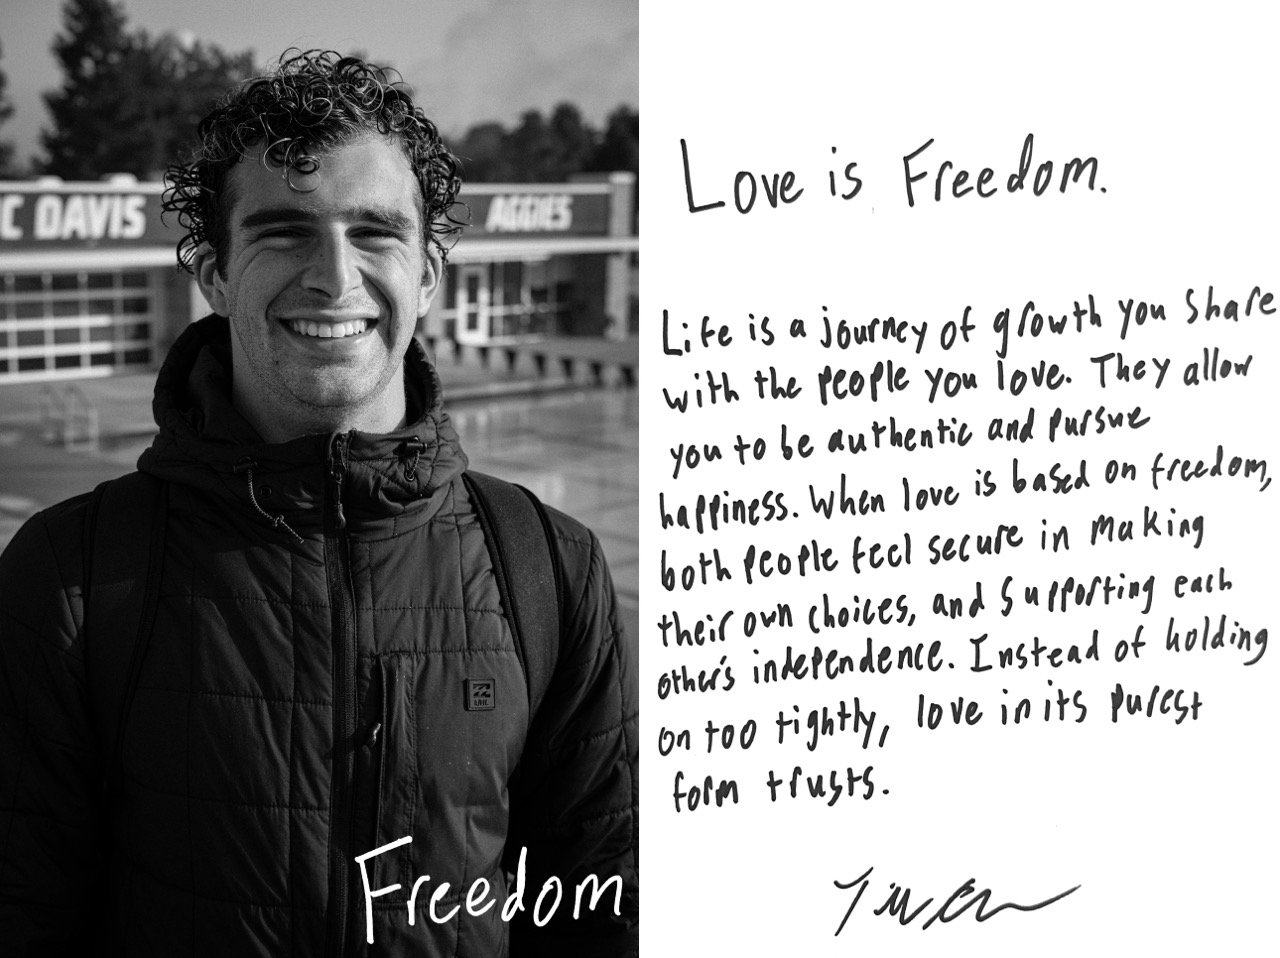 C DAVIS
AGGIES
Freedom
Love is Freedom.
Life is a journey of growth you share
with the people you love. They allow
you to be authentic and pursue
happiness. When love is based on freedom,
both people feel secure in making
their own choices, and supporting each
other's independence. Instead of holding
on too tightly, love in its purest
form trusts.